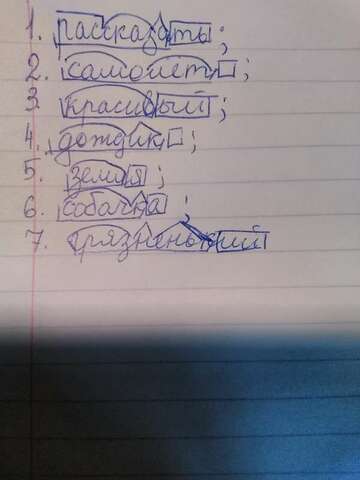 1. рассказать ;
2. самолёт ;
3 красивый ;
4. дождик ;
5. земля ;
6. собачка ;
7. грязненький